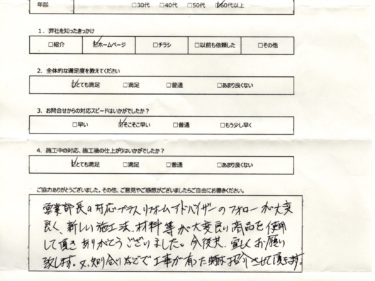 年齢 □30代 □40代 □50代 ☑60代以上
1．弊社を知ったきっかけ
□紹介 ☑ホームページ □チラシ □以前も依頼した □その他
2．全体的な満足度を教えてください
☑とても満足 □満足 □普通 □あまり良くない
3．お問合せからの対応スピードはいかがでしたか？
□早い ☑そこそこ早い □普通 □もう少し早く
4．施工中の対応、施工後の仕上がりはいかがでしたか？
☑とても満足 □満足 □普通 □あまり良くない
ご協力ありがとうございました。その他、ご意見やご感想がございましたらご自由にお書きください。
営業部長の対応プラスリフォームアドバイザーのフォローが大変
良く、新しい施工法、材料等が大変良い商品を使用
して頂きありがとうございました。今後共、宜しくお願い
致します。又、知り合いなどで工事が有った時は紹介させて頂きます。